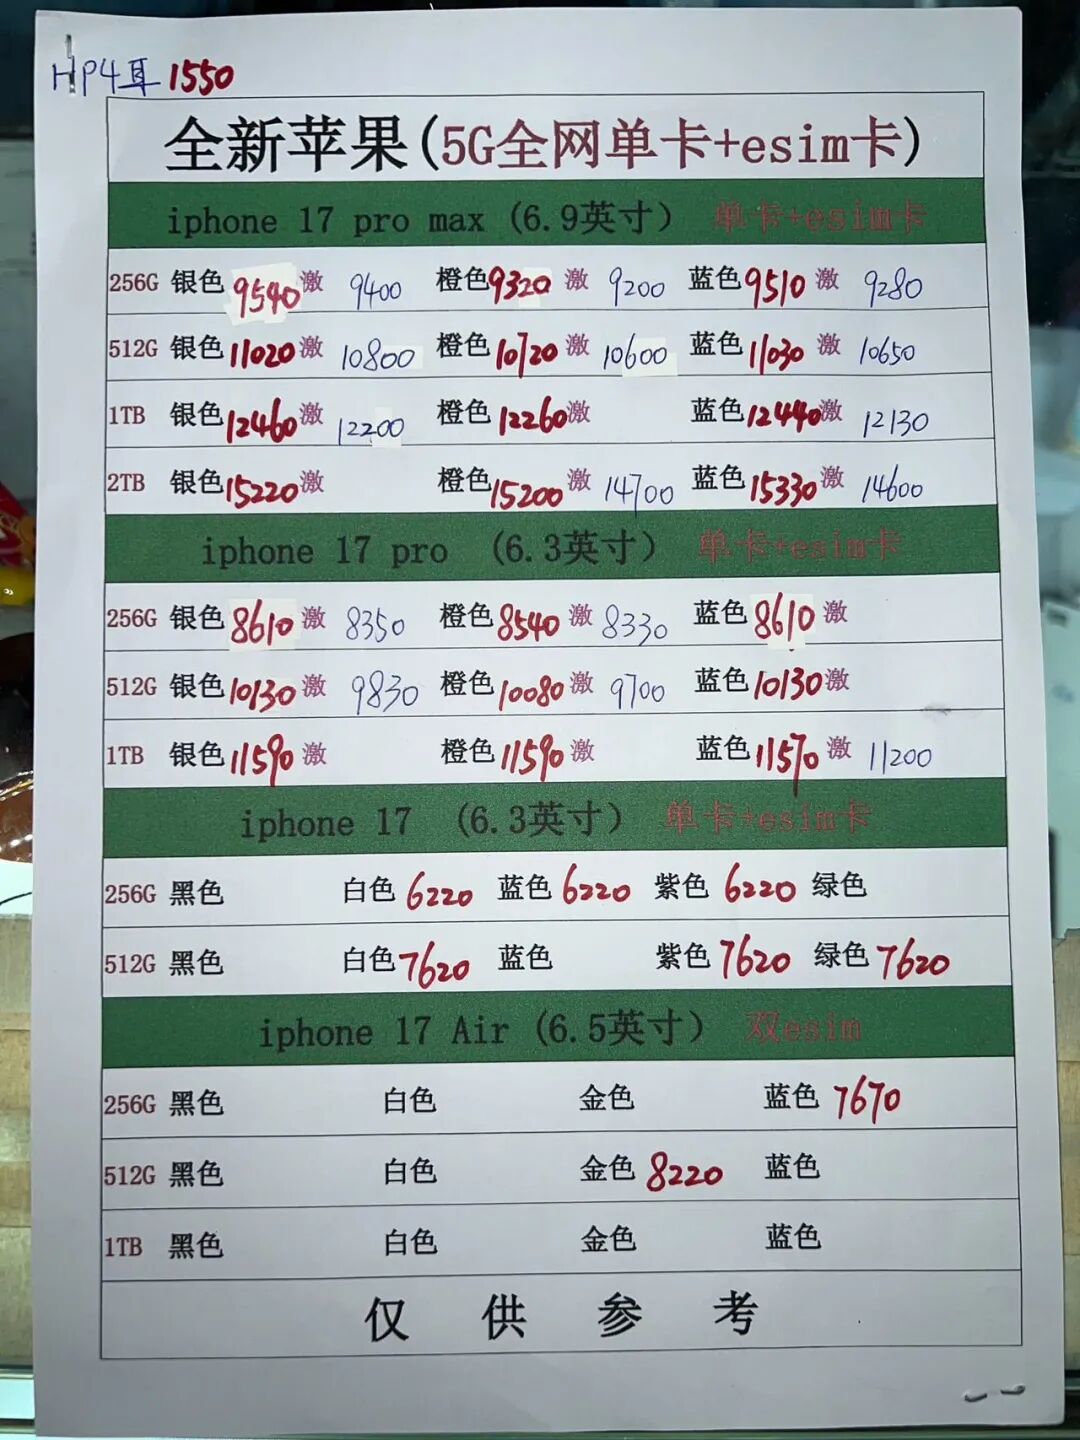 HP4耳 1550
全新苹果(5G全网单卡+esim卡)
iphone 17 pro max (6.9英寸) 单卡+esim卡
256G 银色 9540 激 9400 橙色 9320 激 9200 蓝色 9510 激 9280
512G 银色 11020 激 10800 橙色 10720 激 10600 蓝色 11030 激 10650
1TB 银色 12460 激 12200 橙色 12260 激 蓝色 12440 激 12130
2TB 银色 15220 激 橙色 15200 激 14700 蓝色 15330 激 14600
iphone 17 pro (6.3英寸) 单卡+esim卡
256G 银色 8610 激 8350 橙色 8540 激 8330 蓝色 8610 激
512G 银色 10130 激 9830 橙色 10080 激 9700 蓝色 10130 激
1TB 银色 11590 激 橙色 11590 激 蓝色 11570 激 11200
iphone 17 (6.3英寸) 单卡+esim卡
256G 黑色 白色 6220 蓝色 6220 紫色 6220 绿色
512G 黑色 白色 7620 蓝色 紫色 7620 绿色 7620
iphone 17 Air (6.5英寸) 双esim
256G 黑色 白色 金色 蓝色 7670
512G 黑色 白色 金色 8220 蓝色
1TB 黑色 白色 金色 蓝色
仅供参考